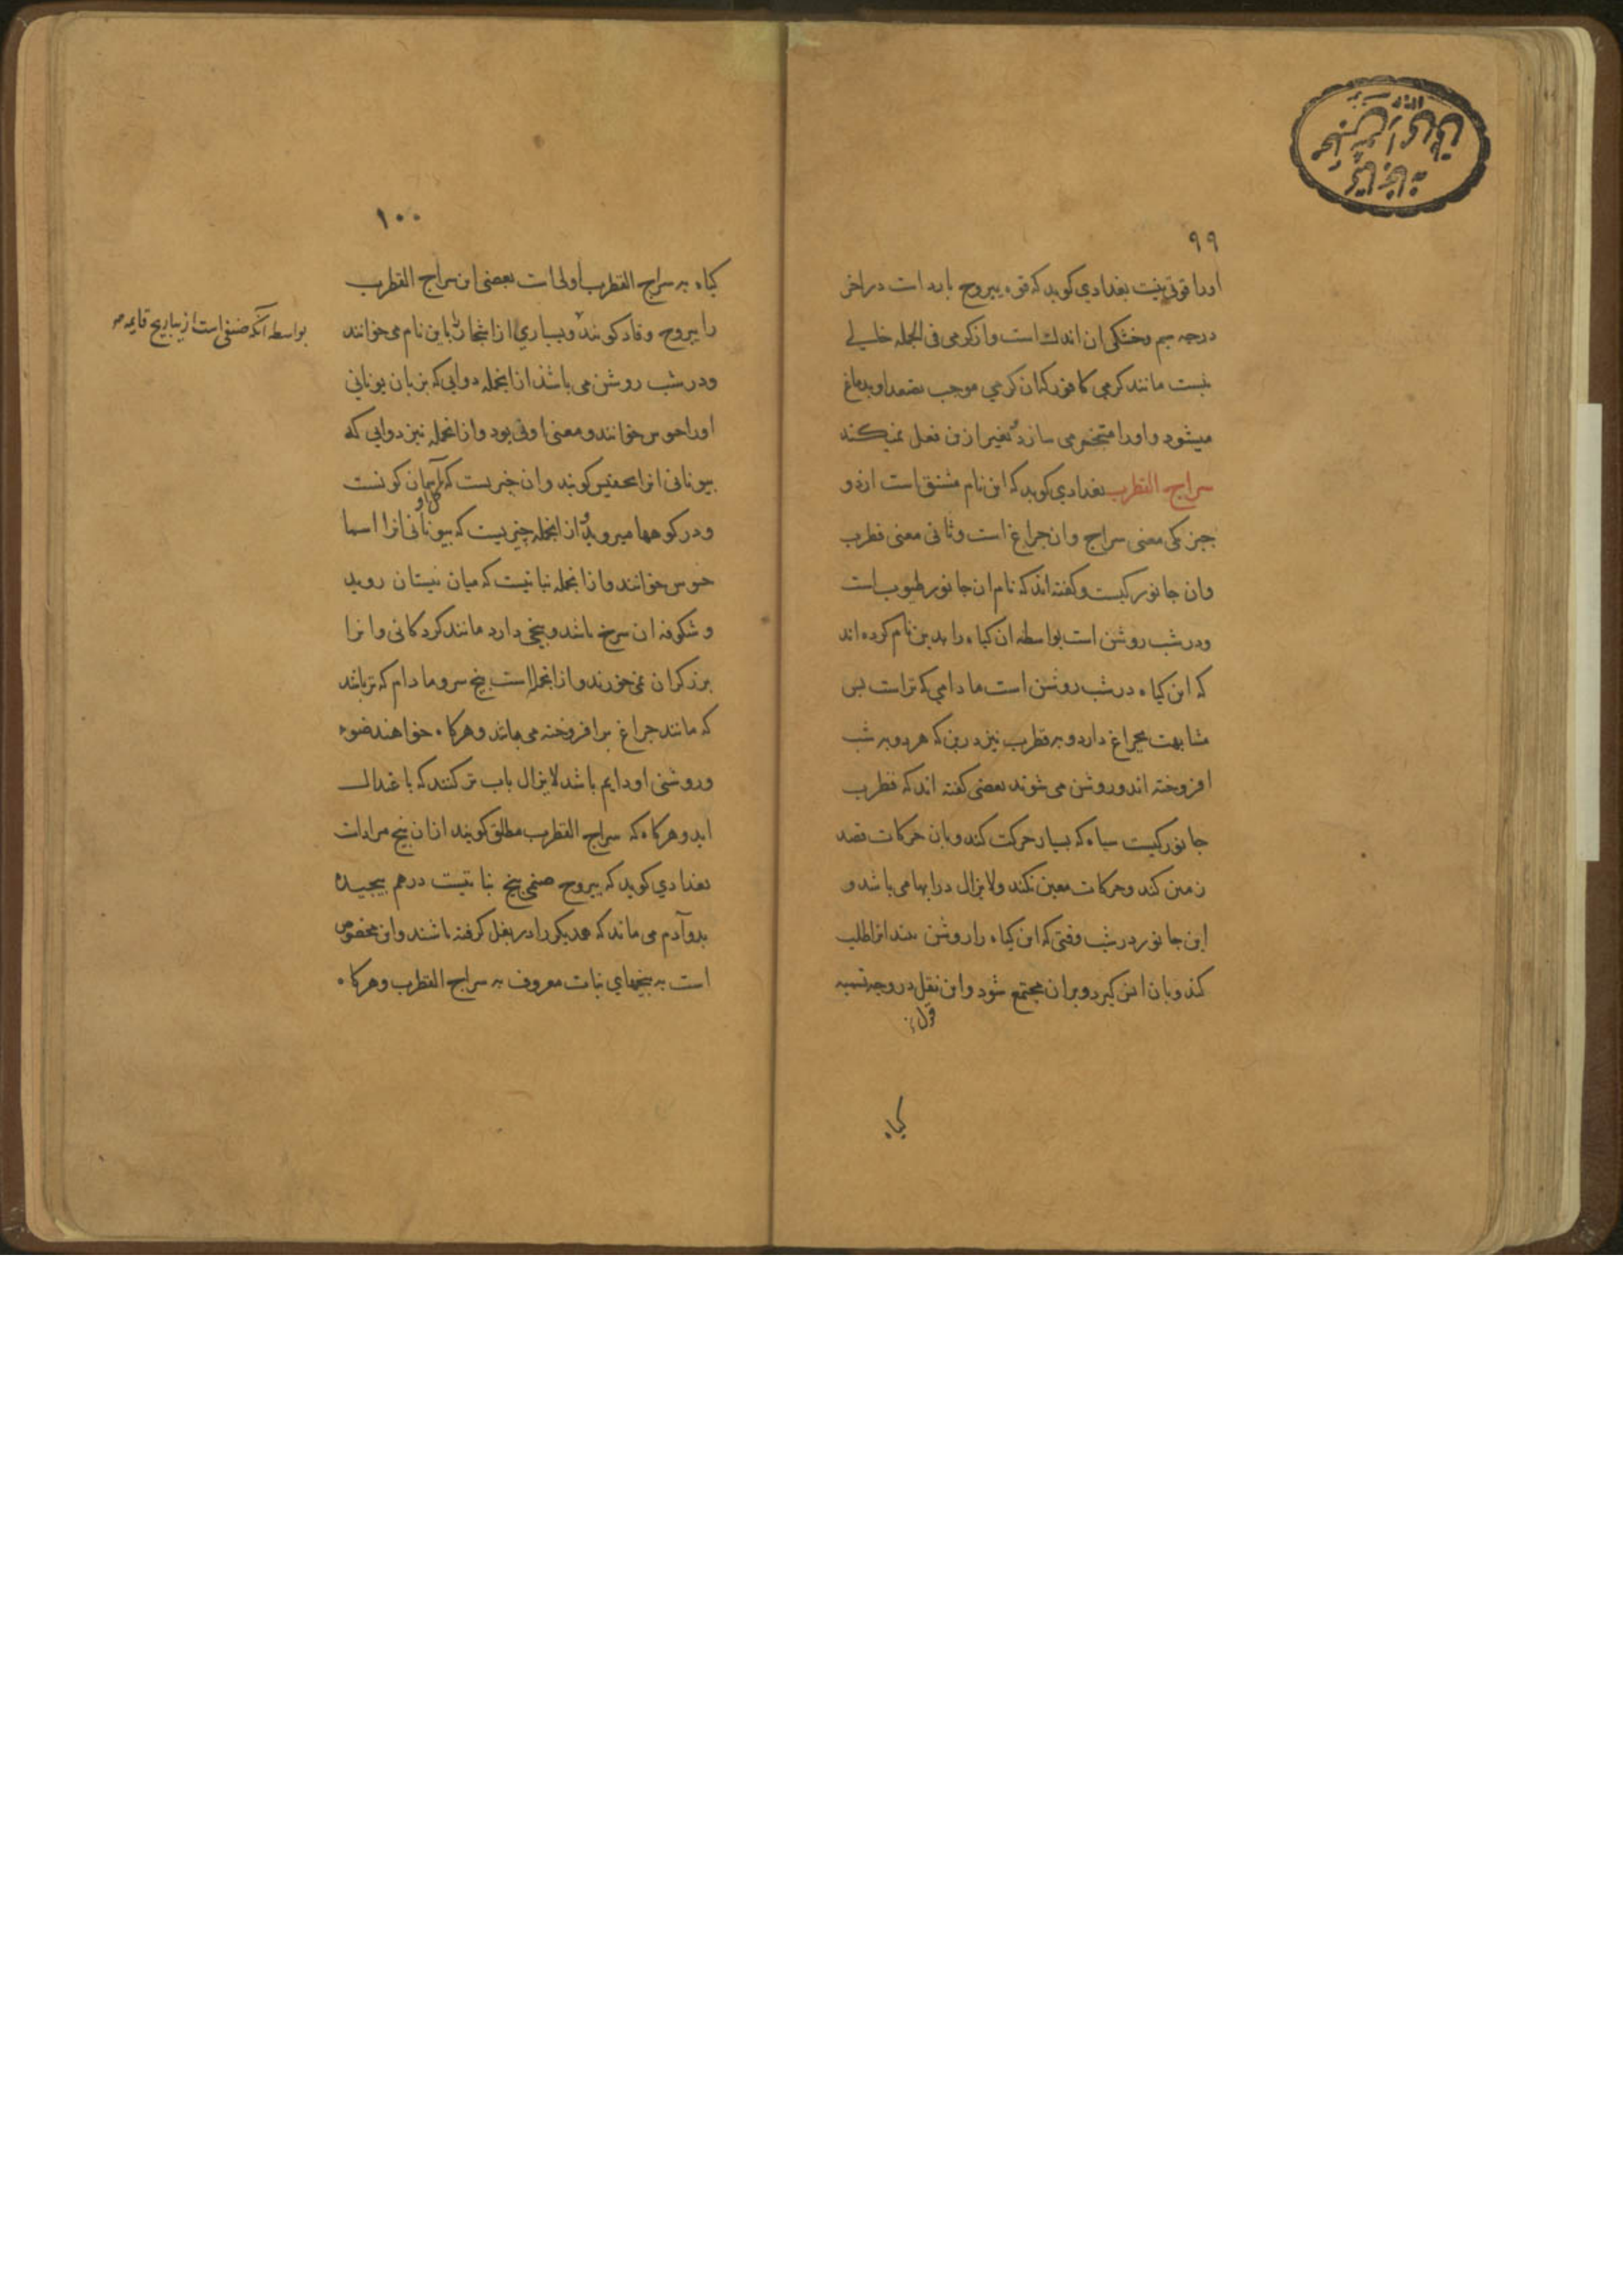 ۹۹
اورا قوتی نیست بغدادی کوید که قوه یبروح بارد است در اخر
درجه سیم وخشکی ان اندك است واز کرمی فی الجمله خالی
نیست مانند کرمی کافور کان کرمی موجب تصعد او بدماغ
میشود واورا متبخر می سازد وغیر ازین فعل نمیکند
سراج القطرب بغدادی کوید که این نام مشتق است از دو
چیز یکی معنی سراج وان چراغ است وثانی معنی قطرب
وان جانورکیست وکفته اند که نام ان جانور طیوب است
ودر شب روشن است بواسطه ان کیاه را بدین نام کرده اند
که این کیاه در شب روشن است ما دامی که تر است بس
مشابهت بچراغ دارد وبه قطرب نیز درین که هر دو به شب
افروخته اند وروشن می شوند بعضی کفته اند که قطرب
جانورکیست سیاه که بسیار حرکت کند وبان حرکات قصد
زمین کند وحرکات معین نکند ولایزال در ابها می باشد و
این جانور در شب وقتی که این کیاه را روشن بیند انرا طلب
کند وبان انس کیرد وبران مجتمع شود واین نقل در وجه تسمیه
کیاه
۱۰۰
کیاه به سراج القطرب اولی است بعضی این سراج القطرب
را یبروح وقاد کویند وبسیاری از اشجار باین نام می خوانند
بواسطه انکه صنفی است از یباریح قایمه
ودر شب روشن می باشد از انجمله دوایی که بزبان یونانی
اورا خوانند ومعنی او قی بود واز انجمله نیز دوایی که
بیونانی انرا کویند وان چیزیست که آسمان کونست
کل او
ودر کوهها میروید واز انجمله چیزیست که بیونانی انرا اسما
خوس خوانند واز انجمله نباتیست که میان نیستان روید
وشکوفه ان سرخ باشد وبیخی دارد مانند کردکانی وانرا
برزکران می خورند واز انجمله است بیخ سرو ما دام که تر باشد
که مانند چراغ برافروخته می ماند وهرکاه خواهند ضوء
وروشنی او دایم باشد لایزال باب تر کنند که باعتدال
اید وهرکاه که سراج القطرب مطلق کویند ازان بیخ مراد است
بغدادی کوید که یبروح صنمی بیخ نباتیست درهم پیچیده
بدو آدم می ماند که همدیکر را در بغل کرفته باشند واین مخصوص
است به بیخهای نبات معروف به سراج القطرب وهرکاه